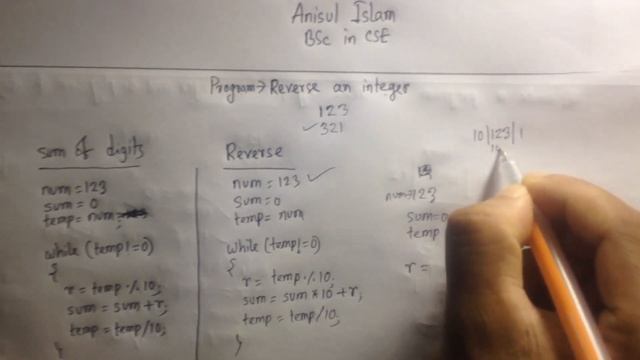 Anisul Islam
BSc in CSE
Program → Reverse an integer
123
✓ 321
sum of digits
num = 123
sum = 0
temp = num;
while (temp != 0)
{
r = temp % 10;
sum = sum + r;
temp = temp/10;
}
Reverse
num = 123 ✓
sum = 0
temp = num
while (temp != 0)
{
r = temp % 10;
sum = sum * 10 + r;
temp = temp/10;
}
10|123|1
num = 123
sum = 0
temp
r =